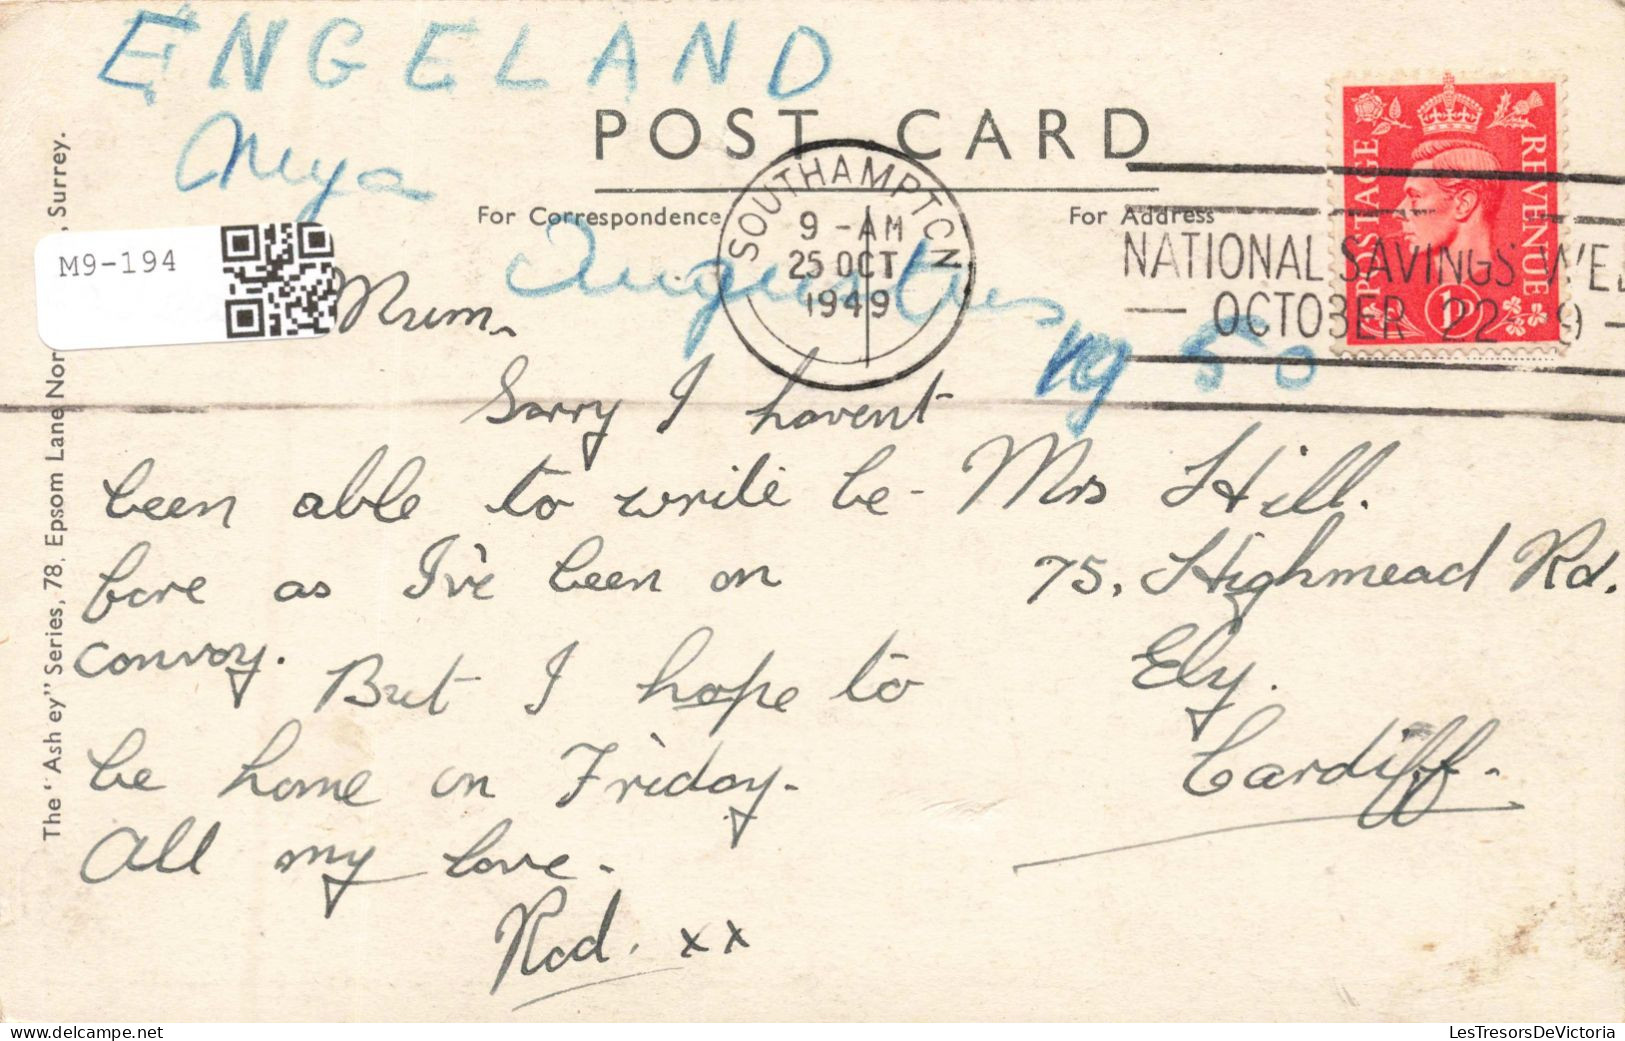 ENGELAND
POST CARD
For Correspondence
For Address
SOUTHAMPTON
9 - AM
25 OCT
1949
NATIONAL SAVINGS WEE
OCTOBER 22 - 9
POSTAGE
REVENUE
1D
M9-194
Augustus
19 50
Mum,
Sorry I havent
been able to write be-
fore as I've been on
convoy.
But I hope to
be home on Friday.
All my love.
Rod. xx
Mrs Hill.
75, Highmead Rd.
Ely.
Cardiff.
The "Ash ey" Series, 78, Epsom Lane Nor , Surrey.
LesTresorsDeVictoria